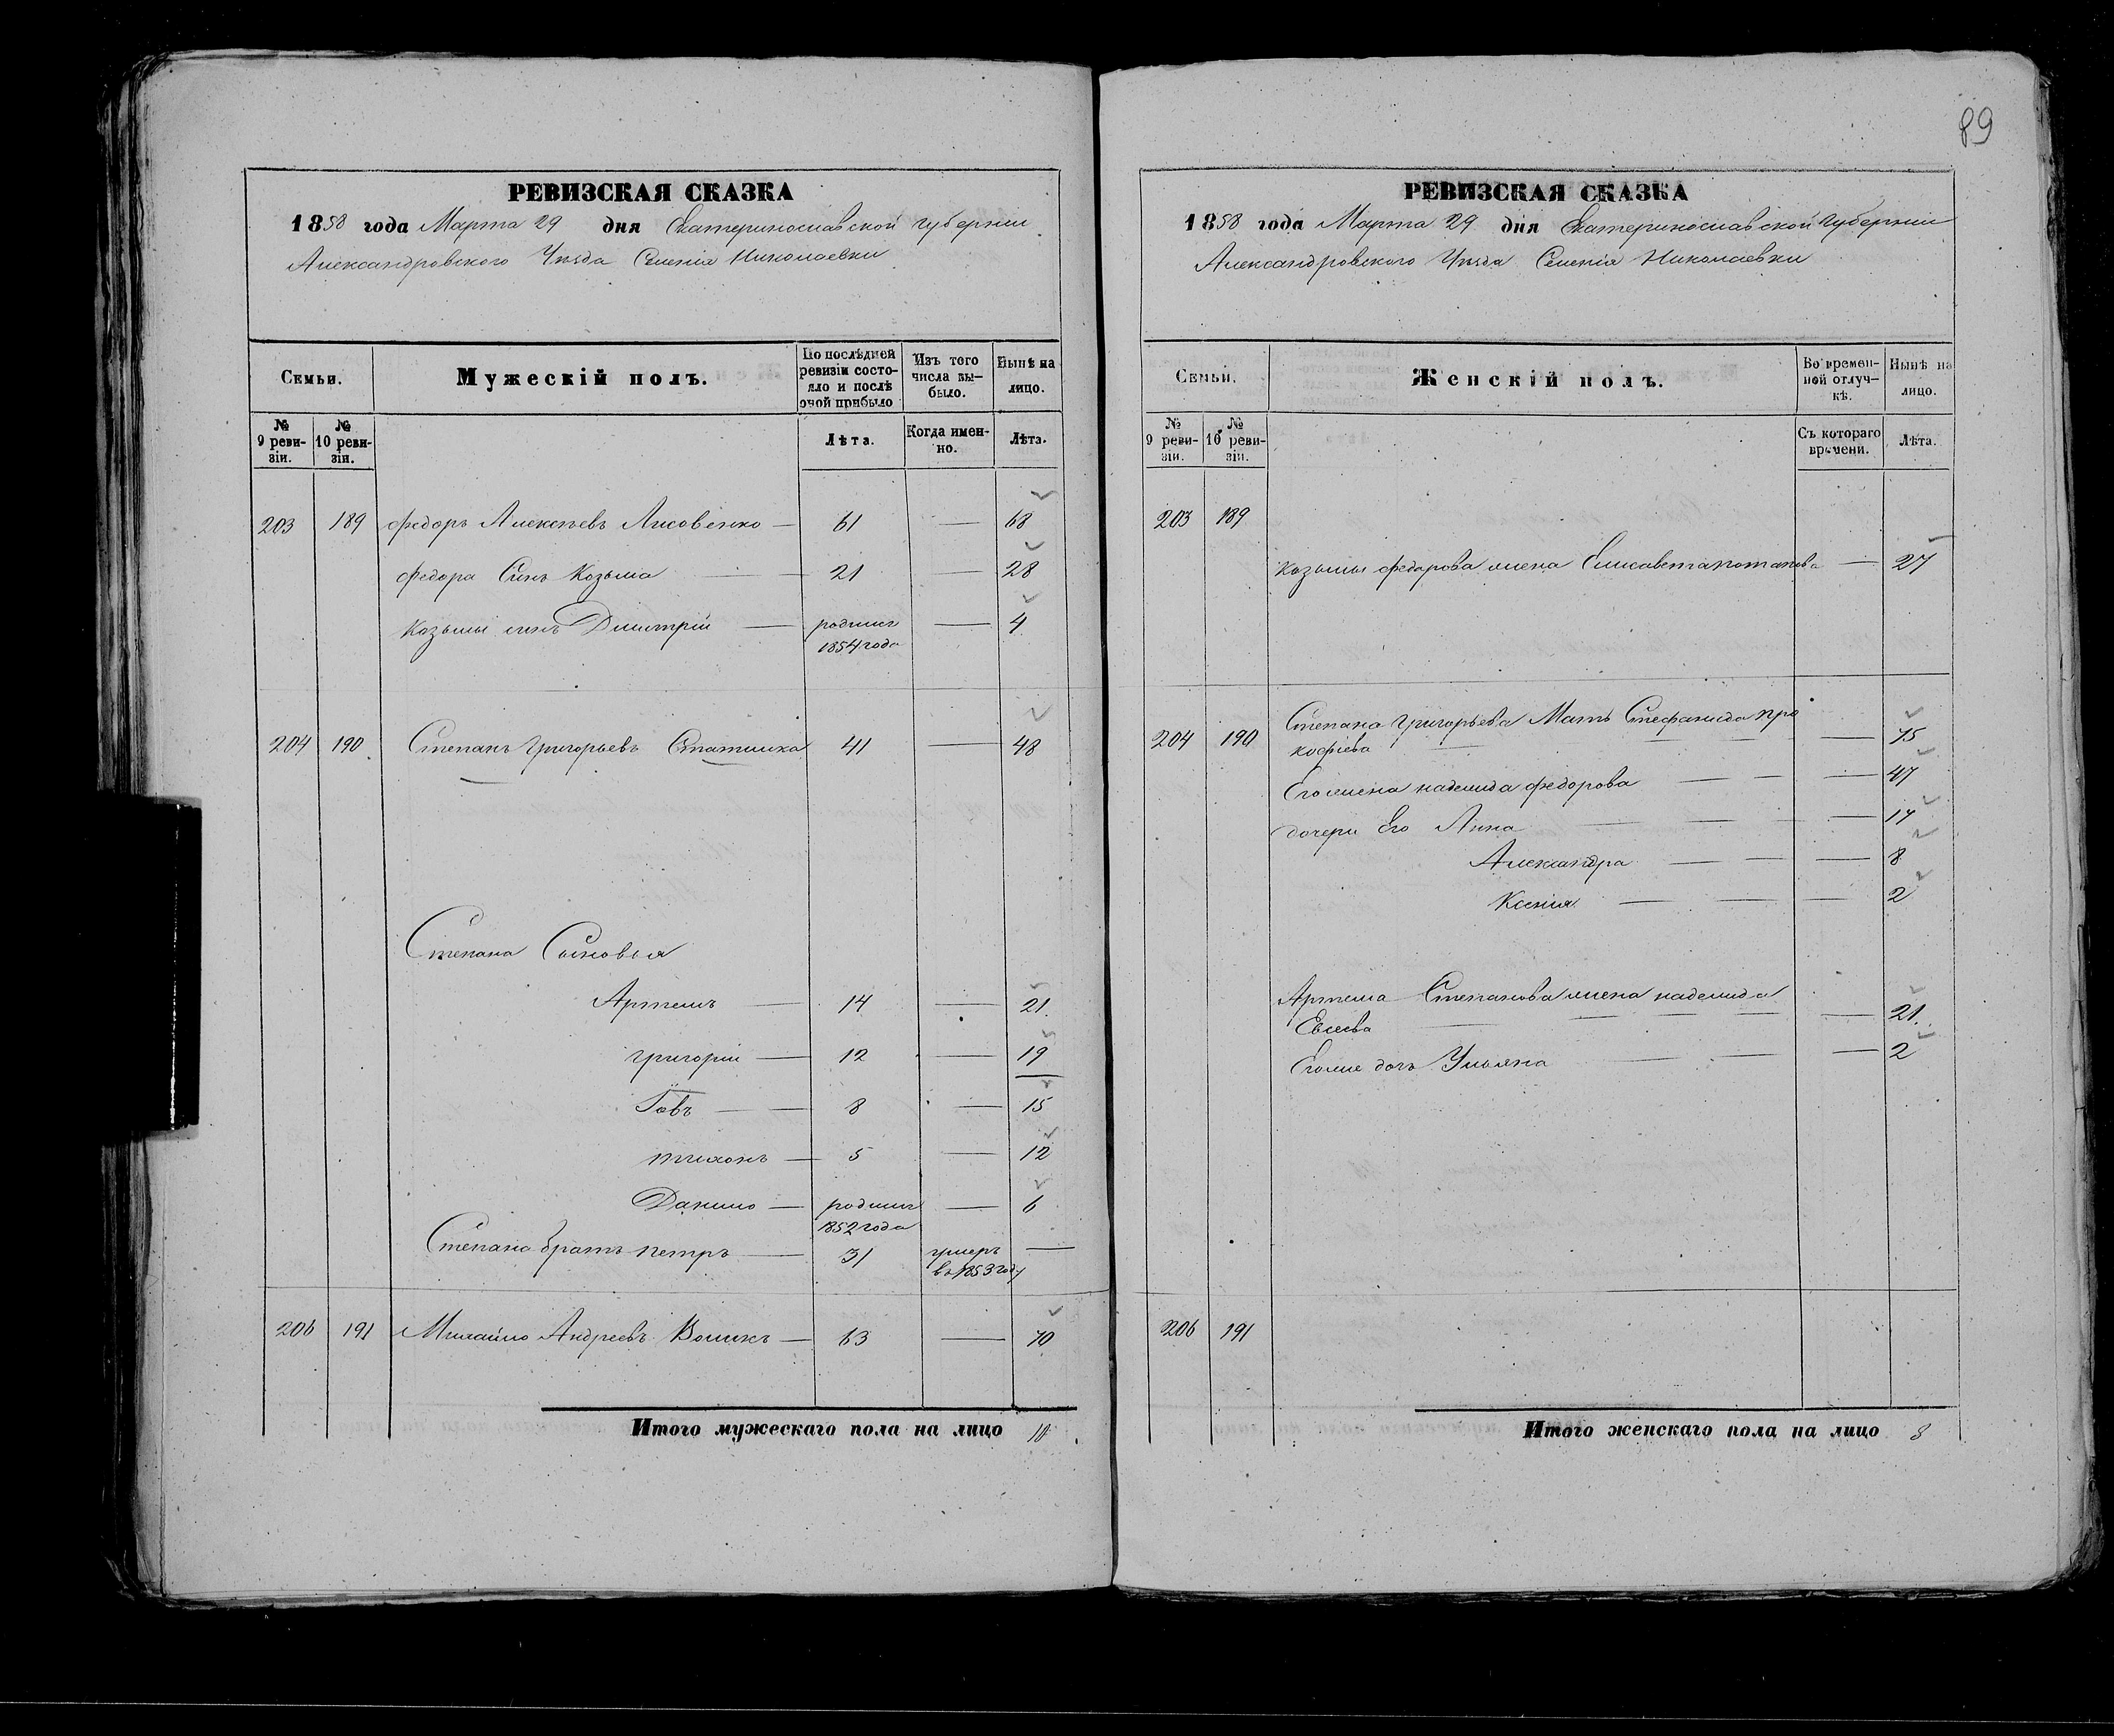 89
РЕВИЗСКАЯ СКАЗКА
1858 года Марта 29 дня Екатеринославской губернии
Александровского Уезда Селенія Николаевки
Семьи.
Мужескій полъ.
По послѣдней ревизіи состояло и послѣ оной прибыло
Изъ того числа выбыло.
Нынѣ на лицо.
№ 9 ревизіи.
№ 10 ревизіи.
Лѣта.
Когда именно.
Лѣта.
203 189 Федоръ Алексѣевъ Лисовенко — 61 — 68
Федора Сынъ Козьма — 21 — 28
Козьмы сынъ Димитрій — родился 1854 года — 4
204 190 Степанъ Григорьевъ 41 — 48
Степана Сыновья
Артемъ — 14 — 21
Григорій — 12 — 19
Іовъ — 8 — 15
Тихонъ — 5 — 12
Данило — родился 1852 года — 6
Степана братъ Петръ — 31 умеръ в 1853 году —
206 191 Михайло Андреевъ Воликъ — 63 — 70
Итого мужескаго пола на лицо 10
РЕВИЗСКАЯ СКАЗКА
1858 года Марта 29 дня Екатеринославской Губерніи
Александровского Уезда Селенія Николаевки
Семьи.
Женскій полъ.
Во временной отлучкѣ.
Нынѣ на лицо.
№ 9 ревизіи.
№ 10 ревизіи.
Съ котораго времени.
Лѣта.
203 189
Козьмы Федорова жена Елисавета Потапова — 27
204 190 Степана Григорьева Мать Стефанида Про
кофіева — 75
Его жена Надежда Федорова — 47
дочери Его Анна — 17
Александра — 8
Ксенія — 2
Артема Степанова жена Надежда
Евсеева — 21
Его же дочь Ульяна — 2
206 191
Итого женскаго пола на лицо 8